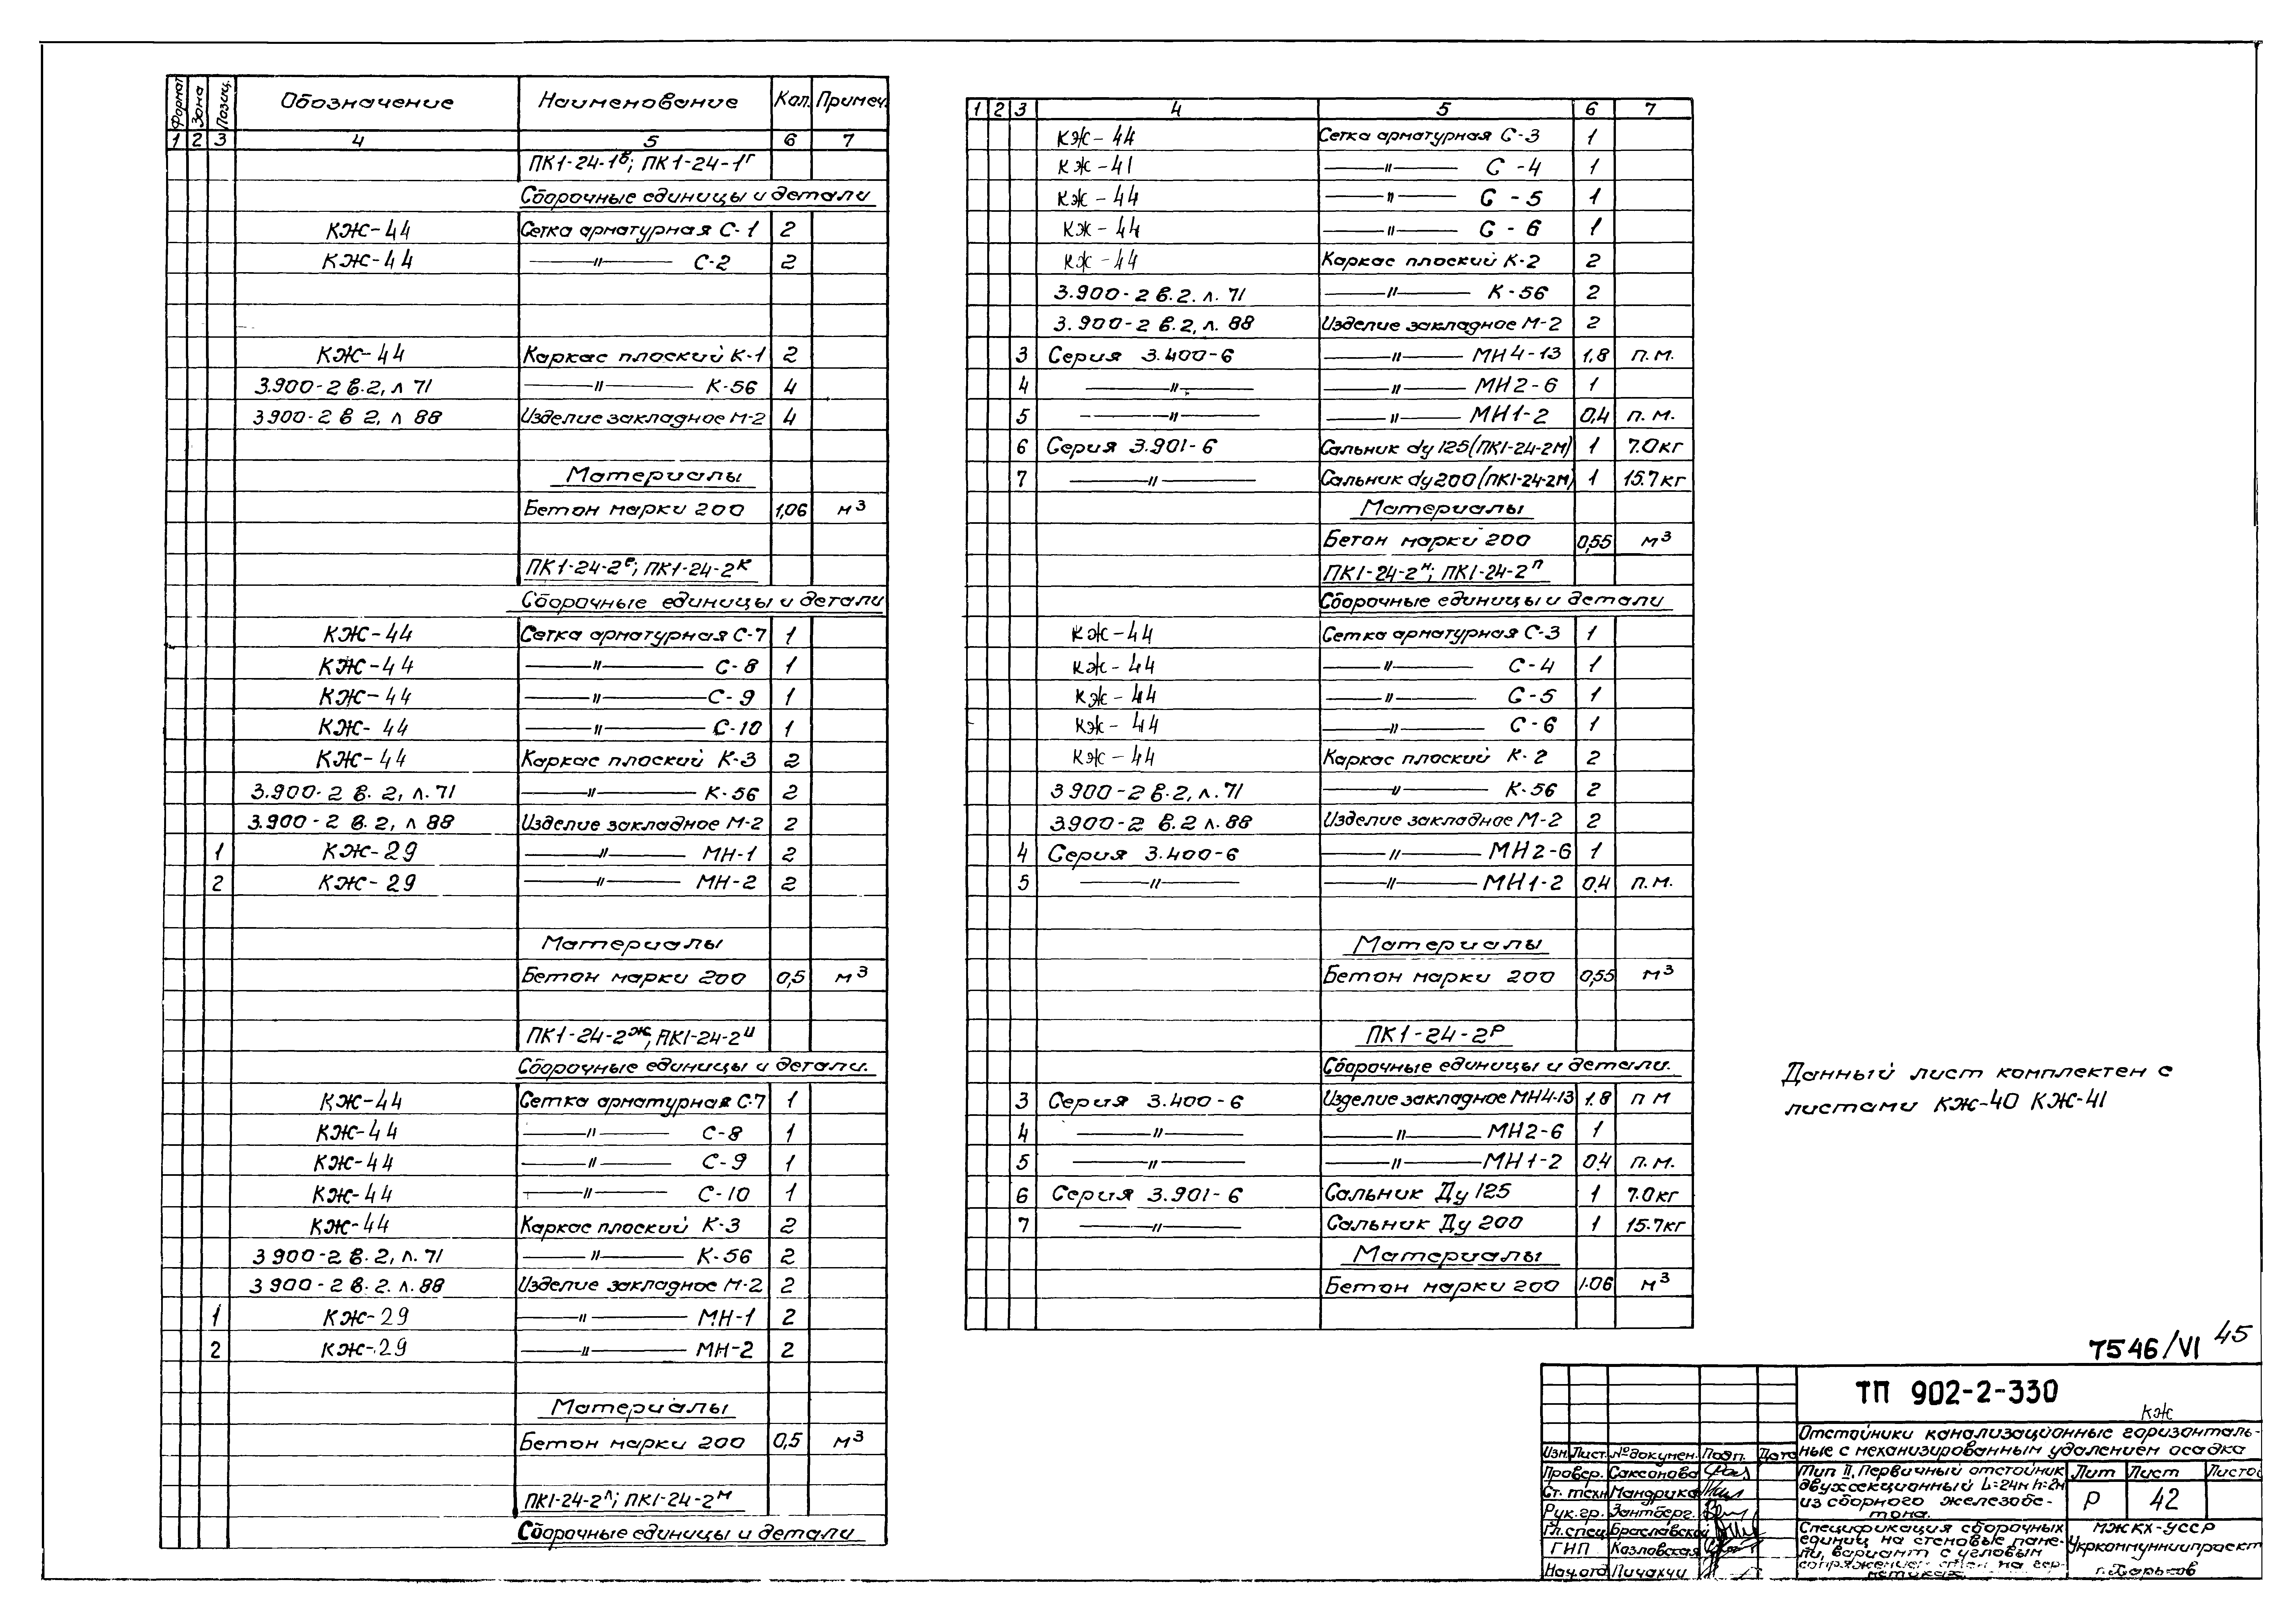 Формат Зона Позиц. Обозначение Наименование Кол. Примеч.
1 2 3 4 5 6 7
ПК1-24-1в; ПК1-24-1г
Сборочные единицы и детали
КЖ-44 Сетка арматурная С-1 2
КЖ-44 —〃— С-2 2
КЖ-44 Каркас плоский К-1 2
3.900-2 в.2, л 71 —〃— К-56 4
3.900-2 в 2, л 88 Изделие закладное М-2 4
Материалы
Бетон марки 200 1,06 м³
ПК1-24-2е; ПК1-24-2к
Сборочные единицы и детали
КЖ-44 Сетка арматурная С-7 1
КЖ-44 —〃— С-8 1
КЖ-44 —〃— С-9 1
КЖ-44 —〃— С-10 1
КЖ-44 Каркас плоский К-3 2
3.900-2 в. 2, л. 71 —〃— К-56 2
3.900-2 в.2, л 88 Изделие закладное М-2 2
1 КЖ-29 —〃— МН-1 2
2 КЖ-29 —〃— МН-2 2
Материалы
Бетон марки 200 0,5 м³
ПК1-24-2ж; ПК1-24-2и
Сборочные единицы и детали.
КЖ-44 Сетка арматурная С-7 1
КЖ-44 —〃— С-8 1
КЖ-44 —〃— С-9 1
КЖ-44 —〃— С-10 1
КЖ-44 Каркас плоский К-3 2
3 900-2 в. 2, л. 71 —〃— К-56 2
3 900-2 в. 2. л. 88 Изделие закладное М-2 2
1 КЖ-29 —〃— МН-1 2
2 КЖ-29 —〃— МН-2 2
Материалы
Бетон марки 200 0,5 м³
ПК1-24-2л; ПК1-24-2м
Сборочные единицы и детали
1 2 3 4 5 6 7
КЖ-44 Сетка арматурная С-3 1
КЖ-41 —〃— С-4 1
КЖ-44 —〃— С-5 1
КЖ-44 —〃— С-6 1
КЖ-44 Каркас плоский К-2 2
3.900-2 в.2. л. 71 —〃— К-56 2
3.900-2 в.2, л. 88 Изделие закладное М-2 2
3 Серия 3.400-6 —〃— МН4-13 1,8 п.м.
4 —〃— —〃— МН2-6 1
5 —〃— —〃— МН1-2 0,4 п.м.
6 Серия 3.901-6 Сальник dy 125 (ПК1-24-2М) 1 7.0кг
7 —〃— Сальник dy200 (ПК1-24-2М) 1 15.7кг
Материалы
Бетон марки 200 0,55 м³
ПК1-24-2н; ПК1-24-2п
Сборочные единицы и детали
КЖ-44 Сетка арматурная С-3 1
КЖ-44 —〃— С-4 1
КЖ-44 —〃— С-5 1
КЖ-44 —〃— С-6 1
КЖ-44 Каркас плоский К-2 2
3 900-2 в.2, л.71 —〃— К-56 2
3.900-2 в.2 л.88 Изделие закладное М-2 2
4 Серия 3.400-6 —〃— МН2-6 1
5 —〃— —〃— МН1-2 0,4 п.м.
Материалы
Бетон марки 200 0,55 м³
ПК1-24-2р
Сборочные единицы и детали.
3 Серия 3.400-6 Изделие закладное МН4-13 1.8 п м
4 —〃— —〃— МН2-6 1
5 —〃— —〃— МН1-2 0.4 п.м.
6 Серия 3.901-6 Сальник Ду 125 1 7.0кг
7 —〃— Сальник Ду 200 1 15.7кг
Материалы
Бетон марки 200 1.06 м³
Данный лист комплектен с
листами КЖ-40 КЖ-41
7546/VI 45
ТП 902-2-330
КЖ
Отстойники канализационные горизонталь-
ные с механизированным удалением осадка
Изм. Лист. № докумен. Подп. Дата
Провер. Саксонова
Ст. техн Мандрика
Рук.гр. Зантберг.
Гл.спец Браславский
ГИП Козловская
Нач.отд
Тип II. Первичный отстойник
двухсекционный L=24м h=2м
из сборного железобе-
тона.
Лит Лист
Р 42
Спецификация сборочных
единиц на стеновые пане-
ли, вариант с угловым
сопряжением стен на гер-
метиках.
МЖКХ-УССР
Укркоммунниипроект
г. Харьков